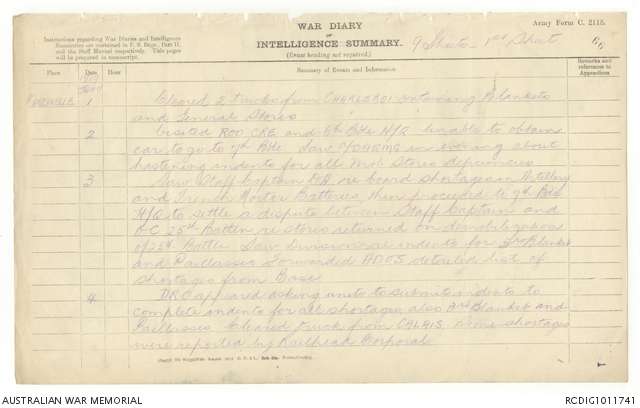 WAR DIARY
OF
INTELLIGENCE SUMMARY.
(Erase heading not required.)
Army Form C. 2118.
Instructions regarding War Diaries and Intelligence
Summaries are contained in F. S. Regs., Part II.
and the Staff Manual respectively. Title pages
will be prepared in manuscript.
9 Sheets - 1st Sheet
Place
Date
Hour
Summary of Events and Information
Remarks and
references to
Appendices
1 Cleared 2 trucks from CHARLEROI containing Blankets
and General Stores
2 Visited ROO CRE and 6th Bde H/Q unable to obtain
car to go to 7th Bde Saw in evening about
hastening indents for all Mob Stores deficiencies
3 Saw Staff Captain DA re board shortages in Artillery
and Trench Mortar Batteries, then proceeded to 7th Bde
H/Q to settle a dispute between Staff Captain and
O.C. 25th Battn re stores returned on demobilization
of 25th Battn Saw Divisional indents for 3rd Blanket
and Paillasses forwarded ADOS detailed list of
shortages from Base
4 DRO appeared asking units to submit indents to
complete indents for all shortages also 3rd Blanket and
Paillasses Cleared truck from CALAIS some shortages
were reported by Railhead Corporal
AUSTRALIAN WAR MEMORIAL
RCDIG1011741